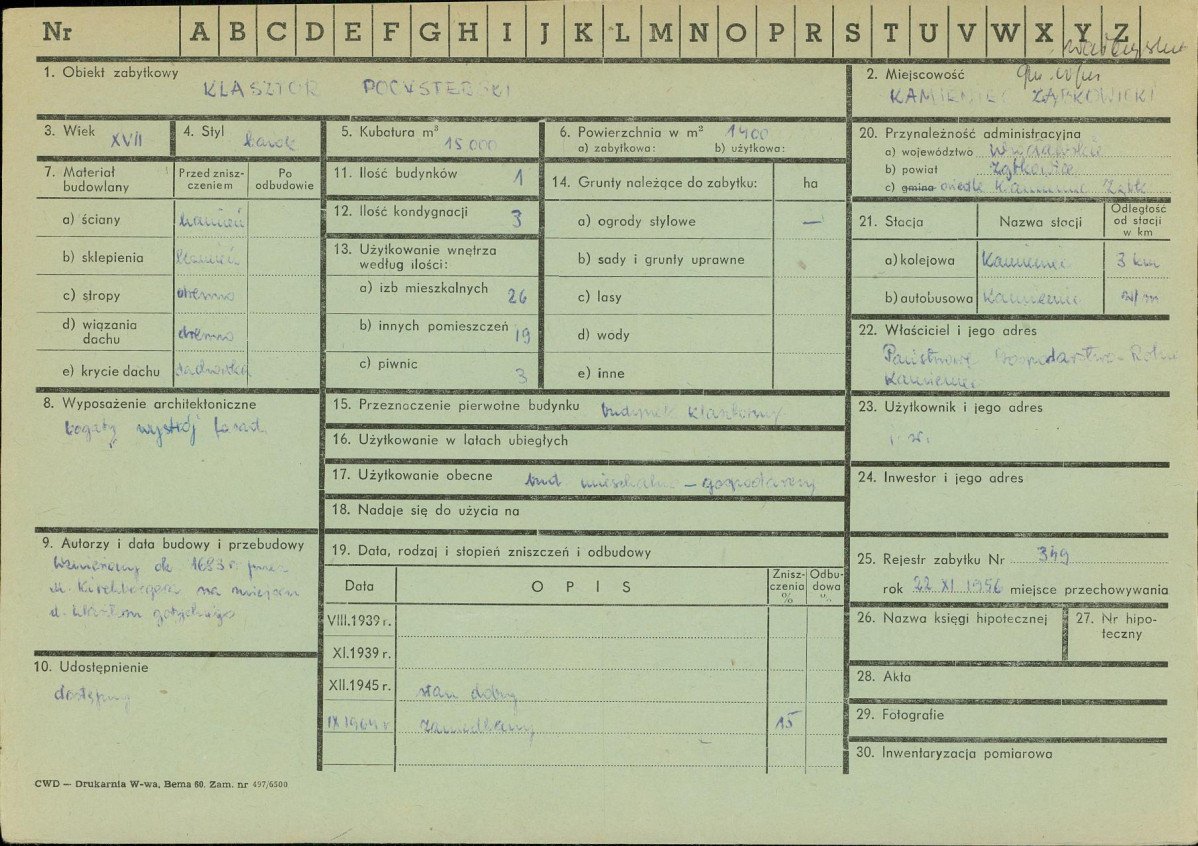 Nr A B C D E F G H I J K L M N O P R S T U V W X Y Z
1. Obiekt zabytkowy
KLASZTOR POCYSTERSKI
2. Miejscowość
KAMIENIEC ZĄBKOWICKI
3. Wiek XVII
4. Styl barok
5. Kubatura m³ 15 000
6. Powierzchnia w m² 1400
a) zabytkowa: b) użytkowa:
7. Materiał budowlany
Przed zniszczeniem
Po odbudowie
a) ściany kamień
b) sklepienia kamień
c) stropy drewno
d) wiązania dachu drewno
e) krycie dachu dachówka
8. Wyposażenie architektoniczne
bogaty wystrój fasad
9. Autorzy i data budowy i przebudowy
Wzniesiony ok. 1683 r. przez
M. Kirchbergera na miejscu
d. klasztoru gotyckiego
10. Udostępnienie
dostępny
11. Ilość budynków 1
12. Ilość kondygnacji 3
13. Użytkowanie wnętrza
według ilości:
a) izb mieszkalnych 26
b) innych pomieszczeń 19
c) piwnic 3
14. Grunty należące do zabytku: ha
a) ogrody stylowe —
b) sady i grunty uprawne
c) lasy
d) wody
e) inne
15. Przeznaczenie pierwotne budynku budynek klasztorny
16. Użytkowanie w latach ubiegłych
17. Użytkowanie obecne bud. mieszkalno - gospodarczy
18. Nadaje się do użycia na
19. Data, rodzaj i stopień zniszczeń i odbudowy
Data O P I S Zniszczenia % Odbudowa %
VIII.1939 r.
XI.1939 r.
XII.1945 r. stan dobry
IX 1964 r zaniedbany 15
20. Przynależność administracyjna
a) województwo Wrocławskie
b) powiat Ząbkowice
c) gmina osiedle Kamieniec Ząbk
21. Stacja Nazwa stacji Odległość od stacji w km
a) kolejowa Kamieniec 3 km
b) autobusowa Kamieniec
22. Właściciel i jego adres
Państwowe Gospodarstwo Rolne
Kamieniec
23. Użytkownik i jego adres
24. Inwestor i jego adres
25. Rejestr zabytku Nr 349
rok 22 XI 1956 miejsce przechowywania
26. Nazwa księgi hipotecznej
27. Nr hipoteczny
28. Akta
29. Fotografie
30. Inwentaryzacja pomiarowa
CWD — Drukarnia W-wa, Bema 60. Zam. nr 497/6500